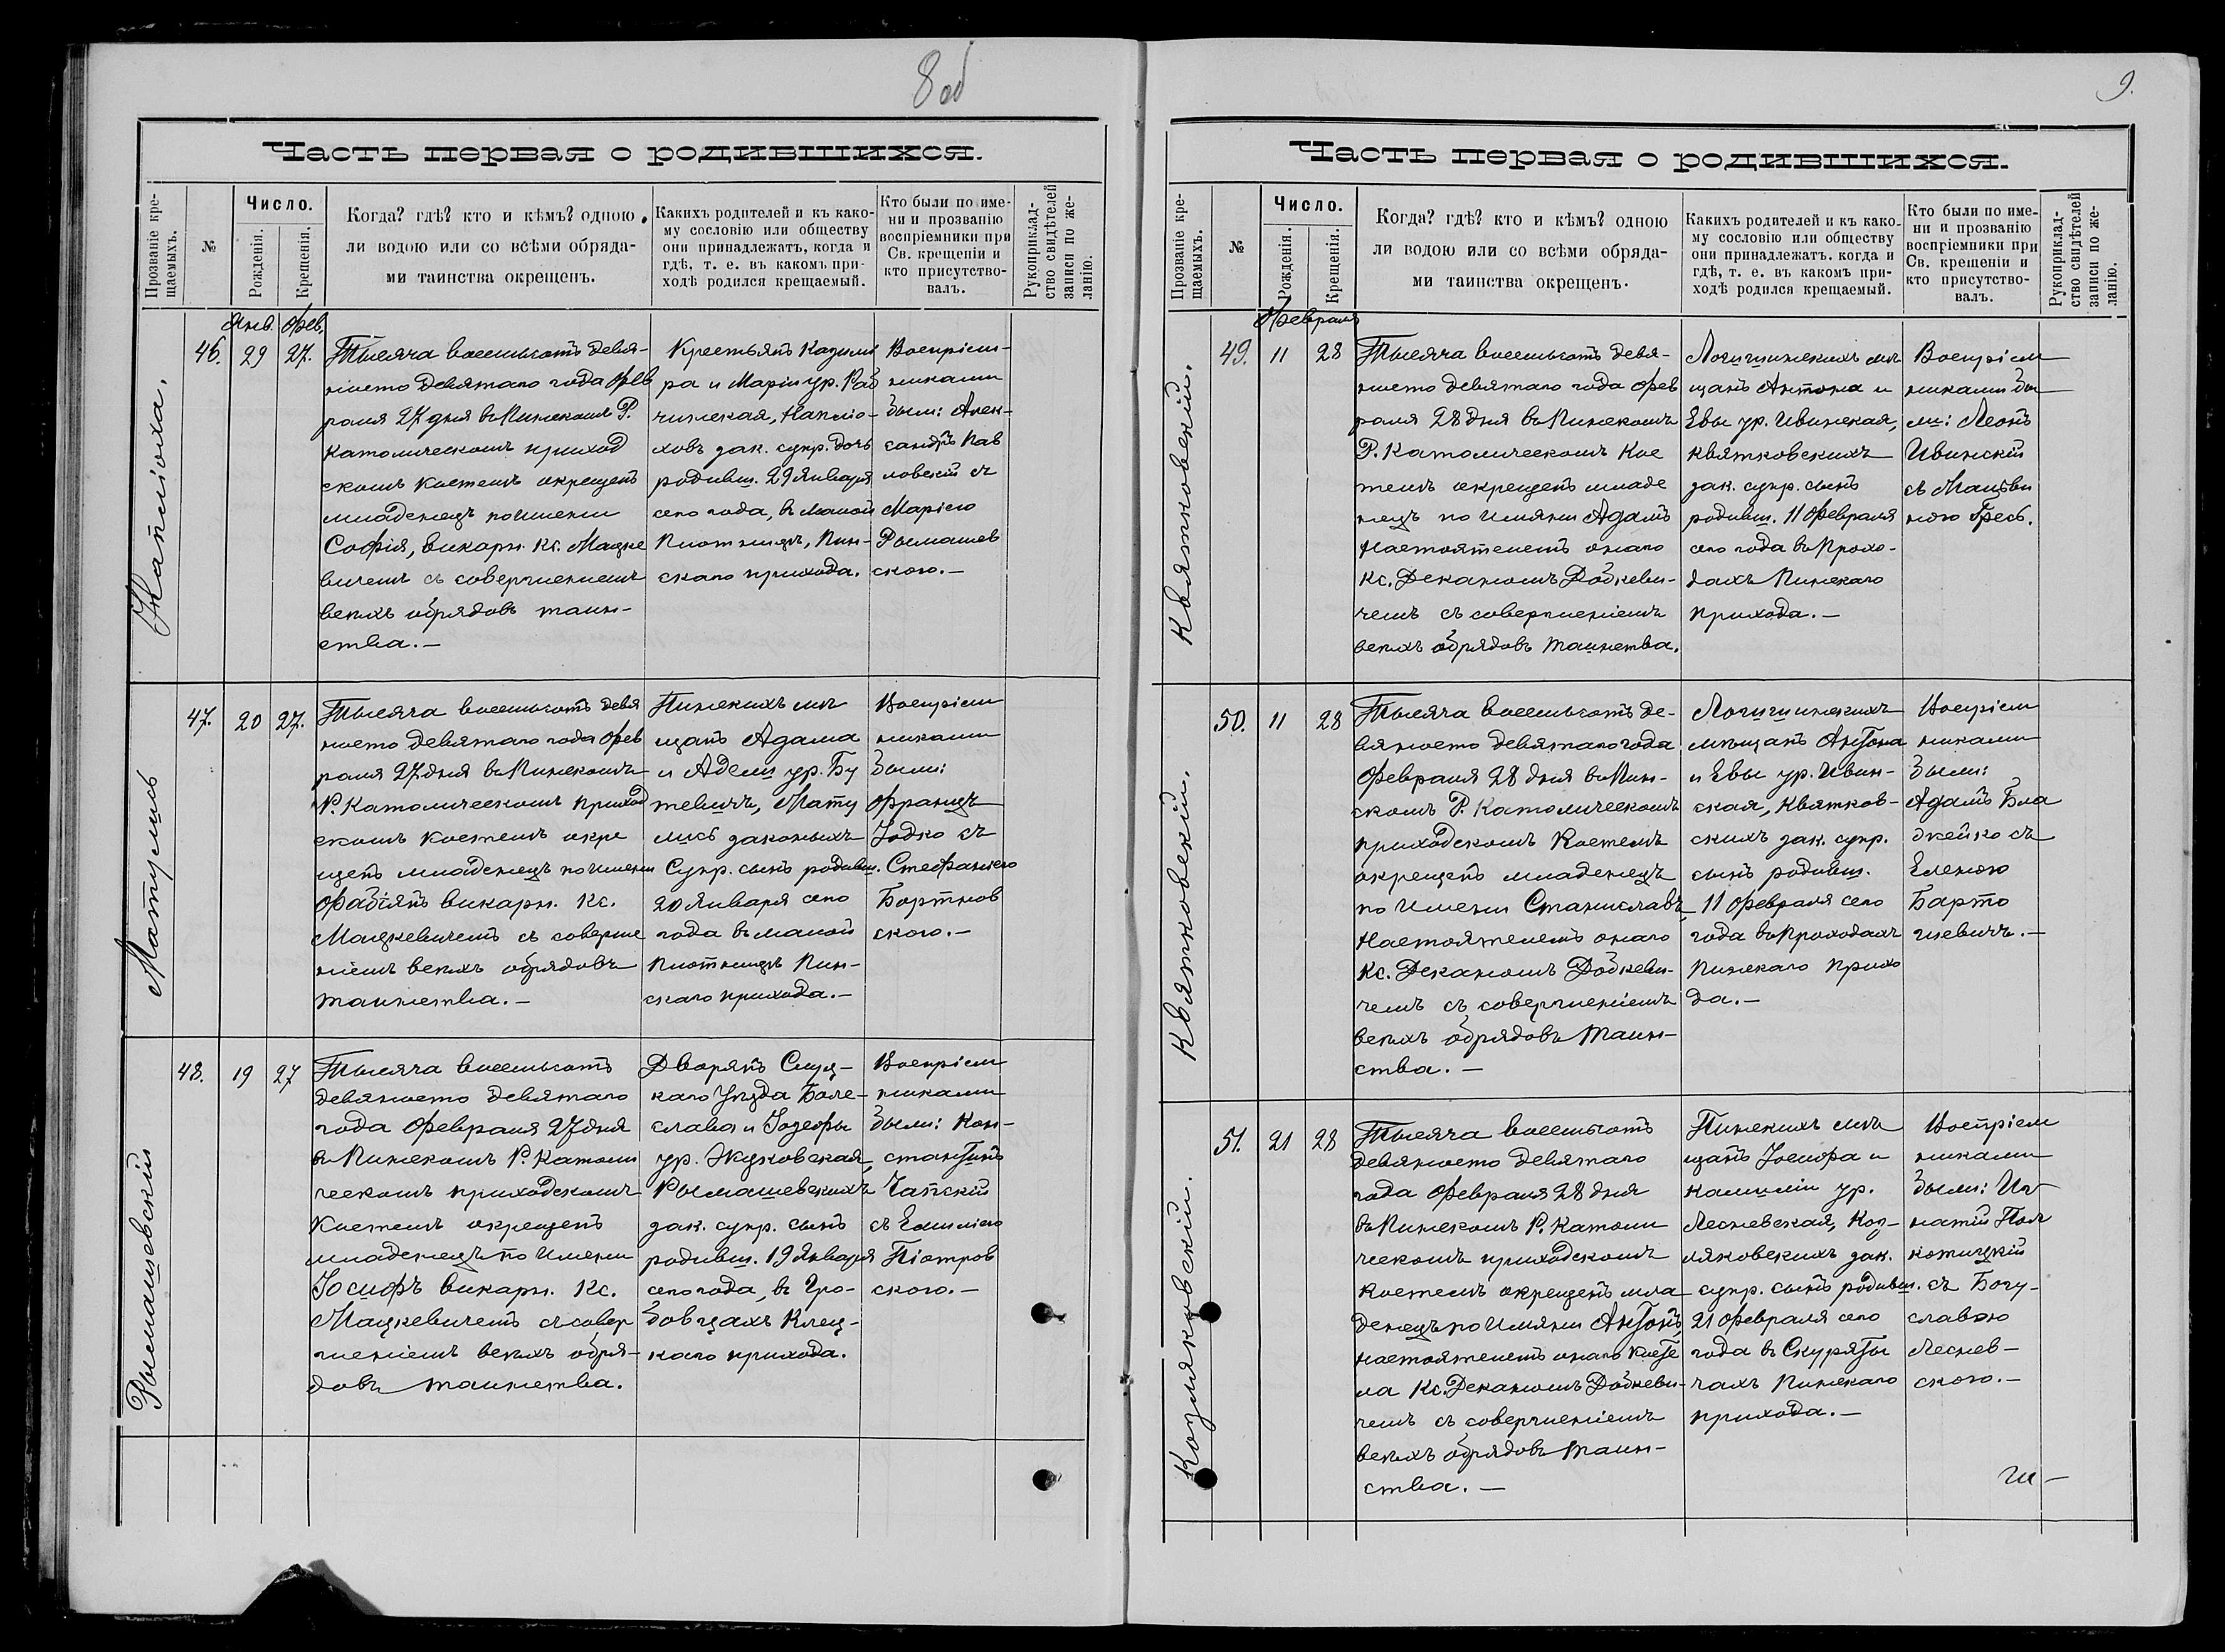 8 об
Часть первая о родившихся.
Прозваніе кре-
щаемыхъ.
№
Число.
Рожденія.
Крещенія.
Когда? гдѣ? кто и кѣмъ? одною
ли водою или со всѣми обряда-
ми таинства окрещенъ.
Какихъ родителей и къ како-
му сословію или обществу
они принадлежатъ, когда и
гдѣ, т. е. въ какомъ при-
ходѣ родился крещаемый.
Кто были по име-
ни и прозванію
воспріемники при
Св. крещеніи и
кто присутство-
валъ.
Рукоприклад-
ство свидѣтелей
записи по же-
ланію.
Янв. Фев.
46. 29 27.
Тысяча восемьсотъ девя-
носто девятаго года Фев
раля 27 дня въ Пинскомъ Р.
Католическомъ приход
скомъ костелѣ окрещенъ
младенецъ по имени
Софія, викарн. Кс. Мацке
вичемъ съ совершеніемъ
всѣхъ обрядовъ таин-
ства.—
Крестьянъ Казими
ра и Маріи ур. Раб
чинская,
ховъ зак. супр. дочь
родивш. 29 Января
сего года, въ малой
Плотницѣ, Пин-
скаго прихода.
Воспріем-
никами
были: Алек-
сандръ Пав
ловскій съ
Маріею
Рымашев
скою.—
Матулись
47. 20 27.
Тысяча восемьсотъ девя
носто девятаго года Фев
раля 27 дня въ Пинскомъ
Р. Католическомъ приход
скомъ костелѣ окре
щенъ младенецъ по имени
Фабіянъ викарн. Кс.
Мацкевичемъ съ соверше
ніемъ всѣхъ обрядовъ
таинства.—
Пинскихъ мѣ
щанъ Адама
и Адели ур. Бу
тевичъ, Мату
лисъ законныхъ
Супр. сынъ родивш.
20 Января сего
года въ малой
Плотницѣ Пин-
скаго прихода.—
Воспріем
никами
были:
Францъ
Іодко съ
Стефаніею
Бортнов
скою.—
Рымашевскій
48. 19 27
Тысяча восемьсотъ
девяносто девятаго
года Февраля 27 дня
въ Пинскомъ Р. Католи
ческомъ приходскомъ
Костелѣ окрещенъ
младенецъ по имени
Іосифъ викарн. Кс.
Мацкевичемъ съ совер
шеніемъ всѣхъ обря-
довъ таинства.
Дворянъ Слуц-
каго Уѣзда Боле-
слава и Іозефы
ур. Жуковская,
Рымашевскихъ
зак. супр. сынъ
родивш. 19 Января
сего года, въ Гро-
бовцахъ Клец-
каго прихода.
Воспріем
никами
были: Кон-
стантинъ
Чапскій
съ Емиліею
Піотров
скою.—
9.
Часть первая о родившихся.
Прозваніе кре-
щаемыхъ.
№
Число.
Рожденія.
Крещенія.
Когда? гдѣ? кто и кѣмъ? одною
ли водою или со всѣми обряда-
ми таинства окрещенъ.
Какихъ родителей и къ како-
му сословію или обществу
они принадлежатъ. когда и
гдѣ, т. е. въ какомъ при-
ходѣ родился крещаемый.
Кто были по име-
ни и прозванію
воспріемники при
Св. крещеніи и
кто присутство-
валъ.
Рукоприклад-
ство свидѣтелей
записи по же-
ланію.
Февраля
Квятковскій.
49. 11 28
Тысяча восемьсотъ девя-
носто девятаго года Фев
раля 28 дня въ Пинскомъ
Р. Католическомъ Кос
телѣ окрещенъ младе
нецъ по имяни Адамъ
Настоятелемъ онаго
Кс. Деканомъ Добкеви-
чемъ съ совершеніемъ
всѣхъ обрядовъ таинства.
Логишинскихъ мѣ
щанъ Антона и
Евы ур. Ивинская,
Квятковскихъ
зак. супр. сынъ
родивш. 11 Февраля
сего года въ Прохо-
дахъ Пинскаго
прихода.—
Воспріем
никами бы
ли: Леонъ
Ивинскій
съ
Гресь.
Квятковскій.
50. 11 28
Тысяча восемьсотъ де-
вяносто девятаго года
Февраля 28 дня въ Пин-
скомъ Р. Католическомъ
приходскомъ Костелѣ
окрещенъ младенецъ
по имени Станиславъ,
Настоятелемъ онаго
Кс. Деканомъ Добкеви-
чемъ съ совершеніемъ
всѣхъ обрядовъ таин-
ства.—
Логишинскихъ
мѣщанъ Антона
и Евы ур. Ивин-
ская, Квятков-
скихъ зак. супр.
сынъ родивш.
11 Февраля сего
года въ Проходахъ
Пинскаго прихо
да.—
Воспріем
никами
были:
Адамъ Бла
жейко съ
Еленою
Барто
шевичъ.—
Козляковскій.
51. 21 28
Тысяча восемьсотъ
девяносто девятаго
года Февраля 28 дня
въ Пинскомъ Р. Католи
ческомъ приходскомъ
Костелѣ окрещенъ мла
денецъ по имяни Антонъ,
настоятелемъ онаго Косте
ла Кс. Деканомъ Добкеви-
чемъ съ совершеніемъ
всѣхъ обрядовъ таин-
ства.—
Пинскихъ мѣ
щанъ Іосифа и
Камиліи ур.
Лесневская, Коз-
ляковскихъ зак.
супр. сынъ родивш.
21 Февраля сего
года въ Скуряты
чахъ Пинскаго
прихода.—
Воспріем
никами
были: Иг
натій Пол
котицкій
съ Богу-
славою
Леснев-
скою.—